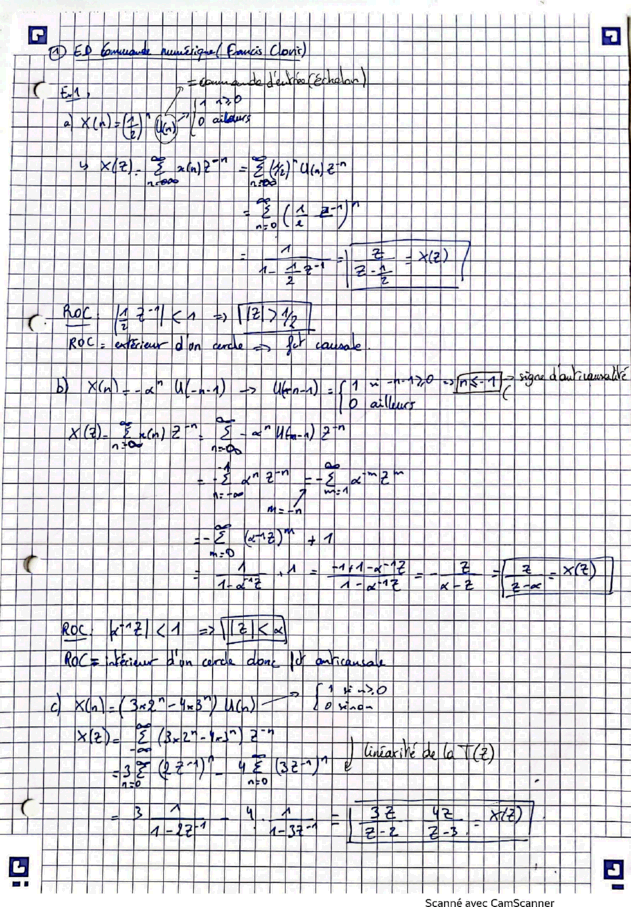 ① ED Commande numérique (Francis Clovis)
Ex 1,
= commande d'entrée (échelon)
a) X(n) = (1/2)^n U(n) → { 1 n≥0
0 ailleurs
↳ X(Z) = ∑_{n=-∞}^{∞} x(n) Z^{-n} = ∑_{n=-∞}^{∞} (1/2)^n U(n) Z^{-n}
= ∑_{n=0}^{∞} (1/2 Z^{-1})^n
= 1/(1 - 1/2 Z^{-1}) = Z/(Z - 1/2) = X(Z)
ROC : |1/2 Z^{-1}| < 1 => |Z| > 1/2
ROC = extérieur d'un cercle => fct causale.
b) X(n) = -α^n U(-n-1) → U(-n-1) = { 1 si -n-1≥0 => n≤-1 → signe d'anticausalité
0 ailleurs
X(Z) = ∑_{n=-∞}^{∞} x(n) Z^{-n} = ∑_{n=-∞}^{∞} -α^n U(-n-1) Z^{-n}
= -∑_{n=-∞}^{-1} α^n Z^{-n} = -∑_{m=1}^{∞} α^{-m} Z^m
m = -n
= -∑_{m=0}^{∞} (α^{-1}Z)^m + 1
= -1/(1-α^{-1}Z) + 1 = (-1+1-α^{-1}Z)/(1-α^{-1}Z) = -Z/(α-Z) = Z/(Z-α) = X(Z)
ROC : |α^{-1}Z| < 1 => |Z| < α
ROC = intérieur d'un cercle donc fct anticausale
c) X(n) = (3×2^n - 4×3^n) U(n) → { 1 si n≥0
0 sinon
X(Z) = ∑_{-∞}^{∞} (3×2^n - 4×3^n) Z^{-n}
= 3∑_{n=0}^{∞} (2Z^{-1})^n - 4∑_{n=0}^{∞} (3Z^{-1})^n linéarité de la T(Z)
= 3 1/(1-2Z^{-1}) - 4 . 1/(1-3Z^{-1}) = 3Z/(Z-2) - 4Z/(Z-3) = X(Z)
Scanné avec CamScanner